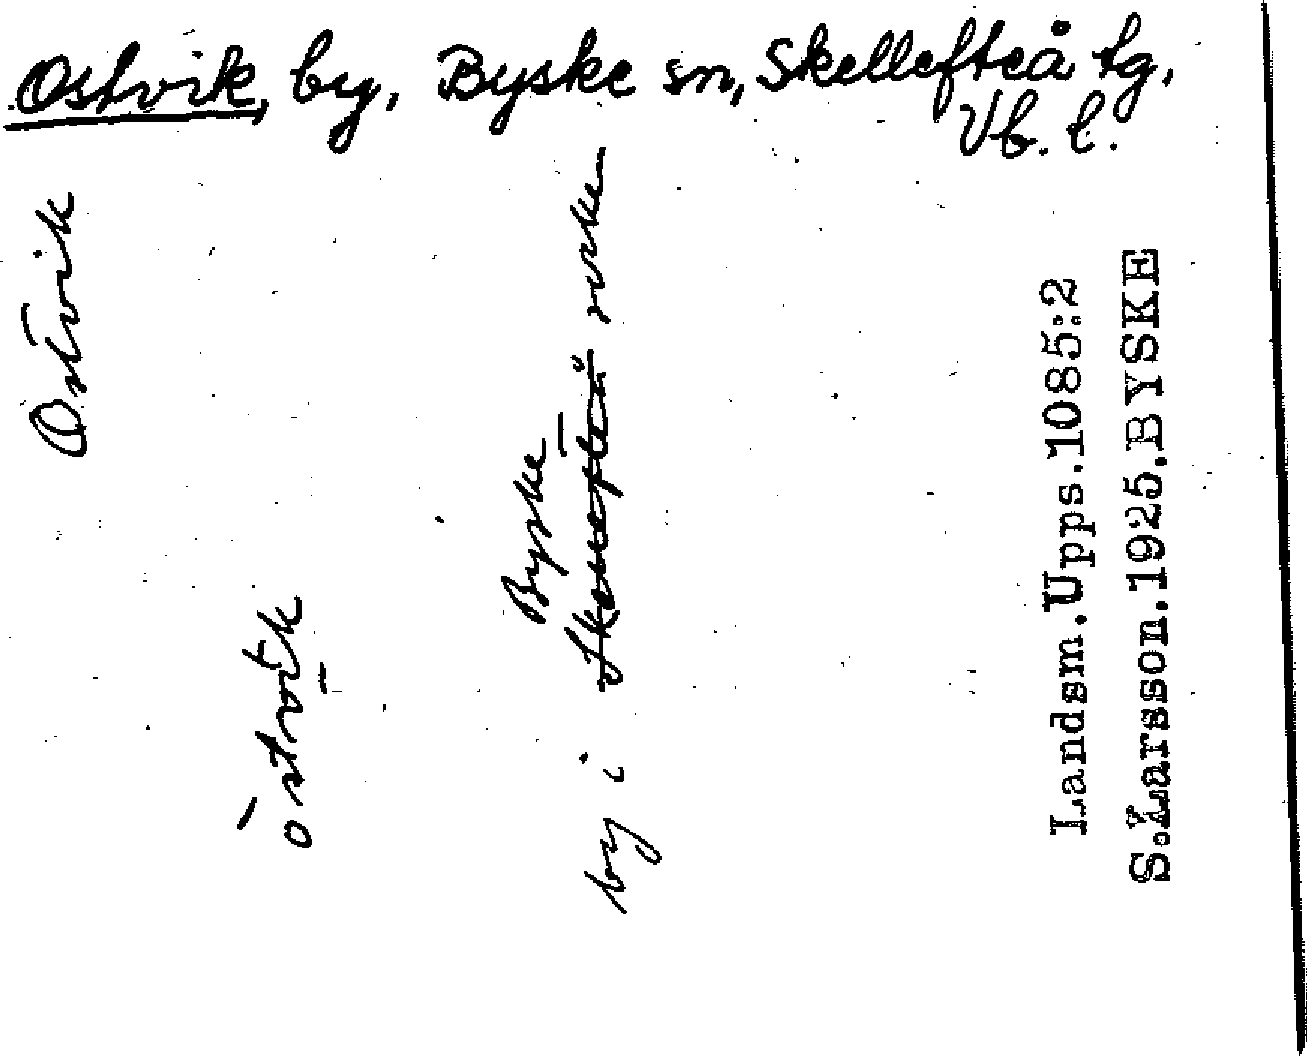 Ostvik, by, Byske sn, Skellefteå tg,
Vb. l.
Ostvik
òstvik
Byske
by i Skellefteå socken
Landsm.Upps.1085:2
S.Larsson.1925.BYSKE